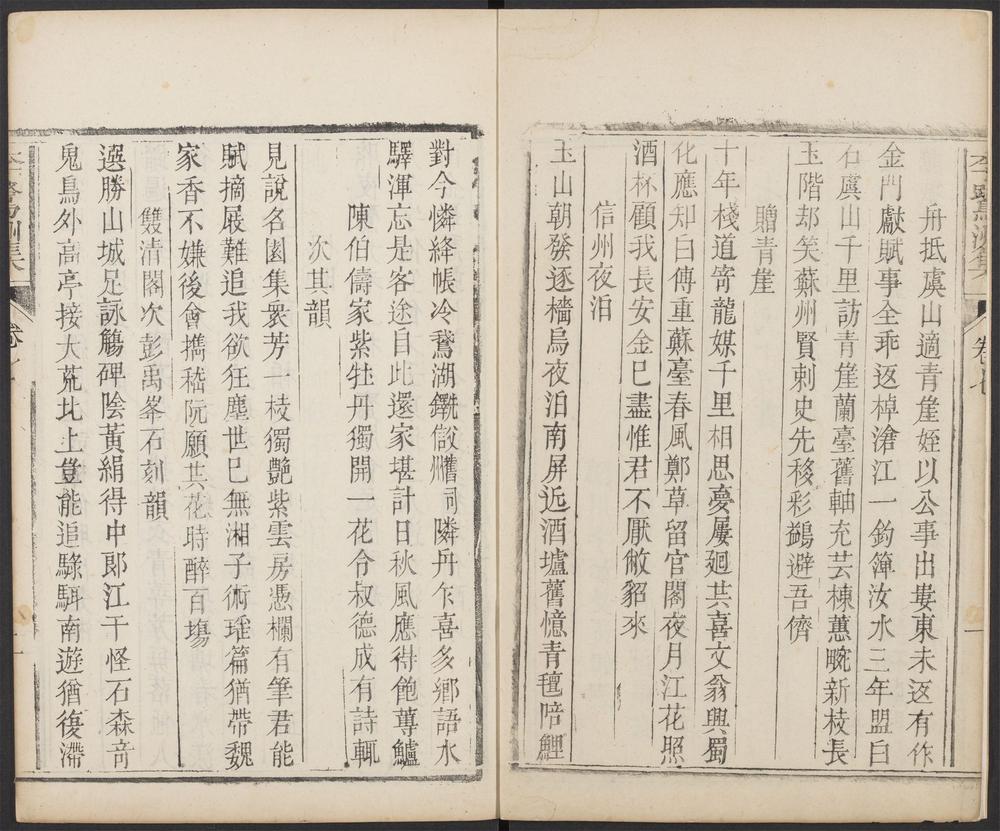 舟抵虞山適青崖姪以公事出婁東未返有作
金門獻賦事全乖返棹滄江一釣簰汝水三年盟白
石虞山千里訪青崖蘭臺舊軸充芸棟蕙畹新枝長
玉階却笑蘇州賢刺史先移彩鷁避吾儕
贈青崖
十年棧道寄龍媒千里相思夢屢廻共喜文翁興蜀
化應知白傅重蘇臺春風鄭草留官閣夜月江花照
酒杯顧我長安金已盡惟君不厭敝貂來
信州夜泊
玉山朝發逐檣烏夜泊南屏近酒壚舊憶青氊陪鯉
對今憐絳帳冷鵞湖隣丹乍喜多鄉語水
驛渾忘是客途自此還家堪計日秋風應得飽蓴鱸
陳伯儔家紫牡丹獨開一花令叔德成有詩輒
次其韻
見說名園集衆芳一枝獨艷紫雲房憑欄有筆君能
賦摘展難追我欲狂塵世已無湘子術瑤篇猶帶魏
家香不嫌後會擕嵇阮願共花時醉百塲
雙清閣次彭禹峯石刻韻
選勝山城足詠觴碑陰黃絹得中郎江干怪石森奇
鬼鳥外高亭接大荒北上豈能追騄駬南遊猶復滯
卷七